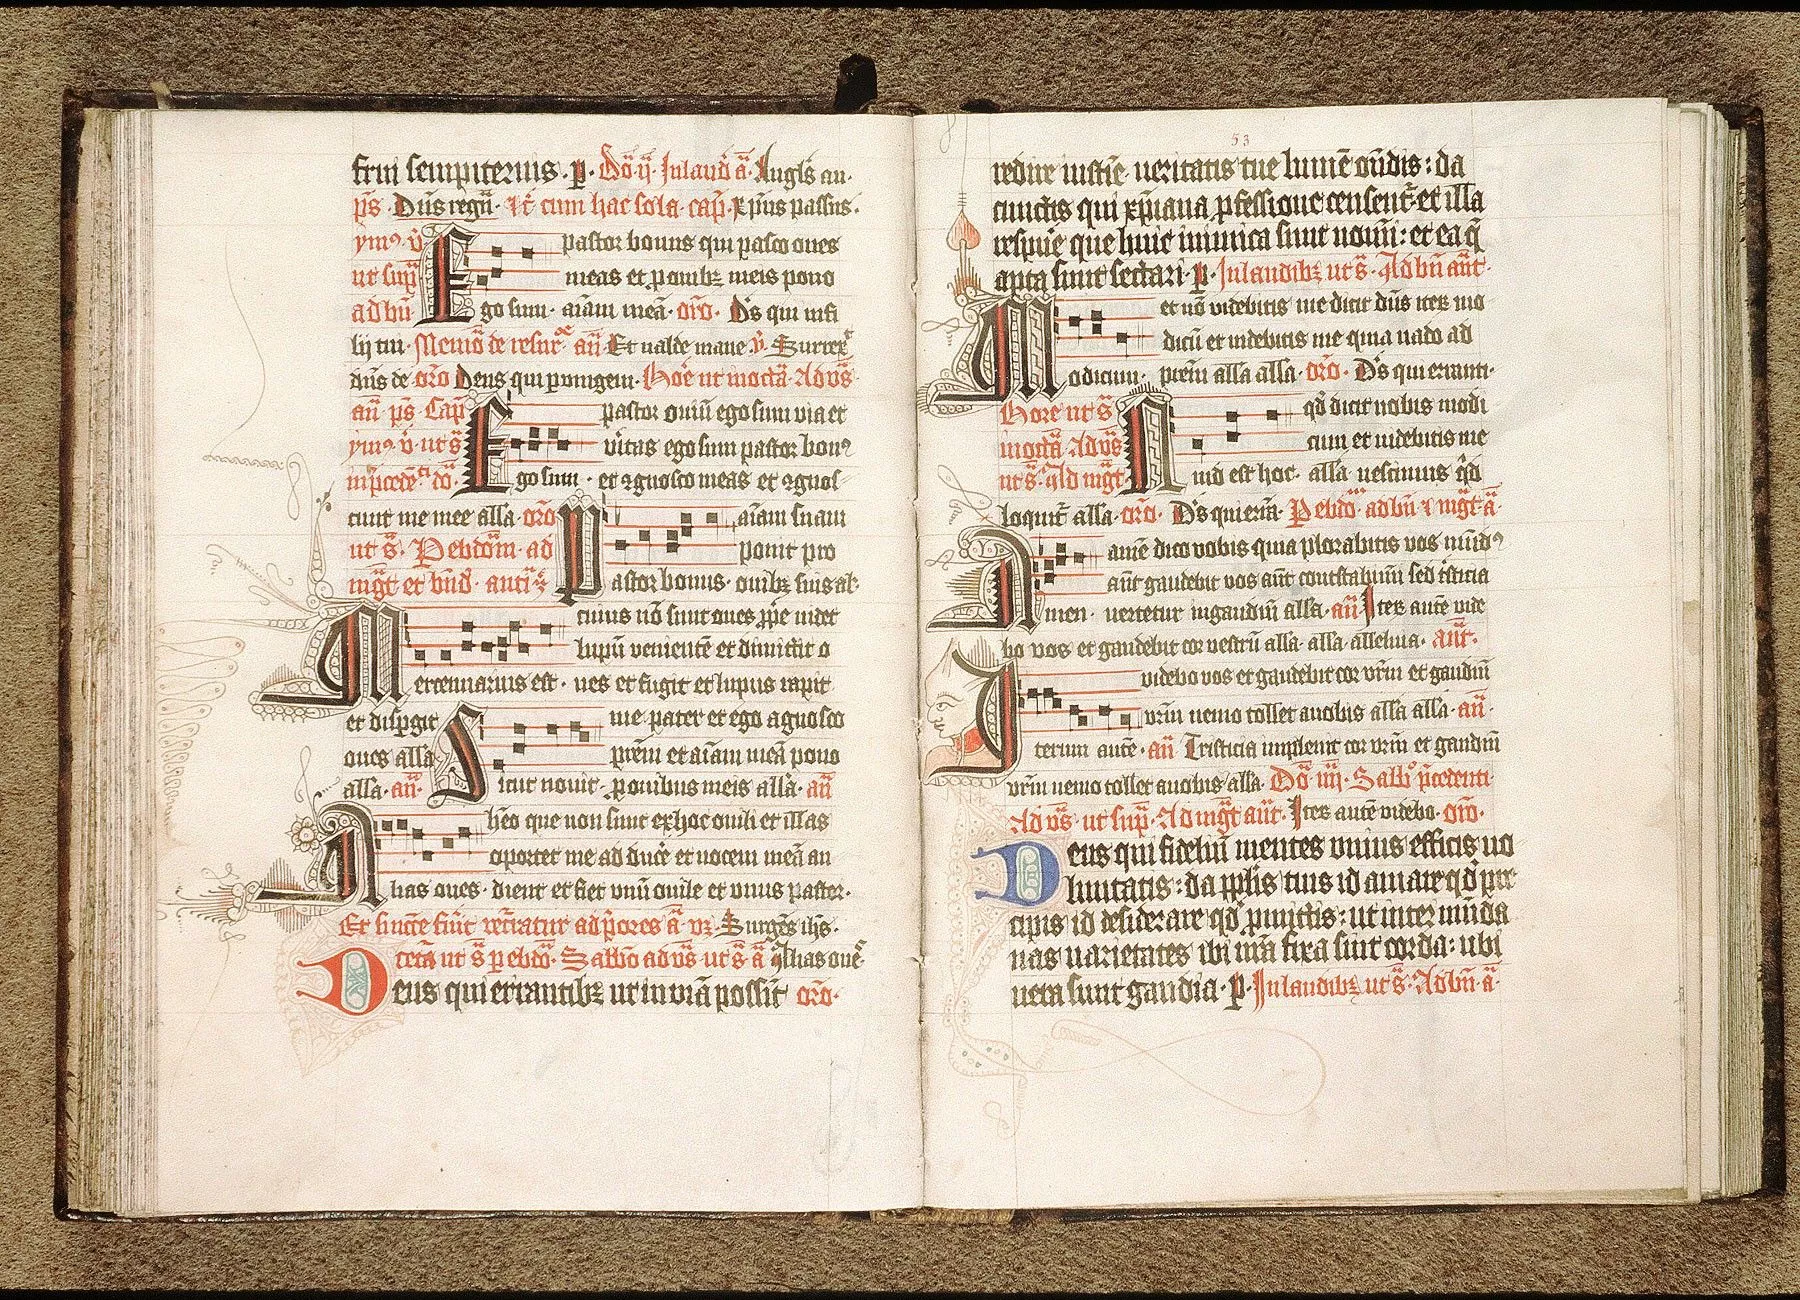 frui sempiternis. p. Do ij Inlaud a Angls au.
ps. Dns regn. It cum hac sola cap. xpus passus.
ymo v pastor bonus qui pasco oues
ut sup meas et p ouibz meis pono
ad bn Ego sum. aiam mea. oro. Ds qui in fi
lij tui. Memo de resur. an Et ualde mane. v. Surrex
dns de oro Deus qui p unigen. Hore ut nocta. Ad vs
an ps Cap pastor ouiu ego sum uia et
ymo v ut s uitas ego sum pastor bono
Ego sum. et cognosco meas et cognos-
cunt me mee alla. oro aiam suam
ut s. Pebdom. ad ponit pro
mgt et bnd. anti Pastor bonus. ouibz suis al.
cuius no sunt oues ppe uidet
lupu ueniente et dimittit o
Mercennarius est. ues et fugit et lupus rapit
et dispgit me pater et ego agnosco
oues alla prem et aiam mea pono
alla. an. Sicut nouit. p ouibus meis alla. an
heo que non sunt ex hoc ouili et illas
oportet me ad duce et uocem mea au
Alias oues. dient et fiet unu ouile et unus pastor.
Et sic te fiut Surges ihs.
ut s p ebdo. Sabbo ad vs ut s a Alias oue
Deus qui errantibz ut in uia possit oro.
53
redire iustie ueritatis tue lume ondis: da
cunctis qui xpiana pfessione censent et illa
respue que huic inimica sunt noui: et ea q
apta sunt sectari. p. Inlaudibz ut s. Ad bn ant.
et no uidebitis me dicit dus iter mo
dicu et uidebitis me quia uado ad
Modicum. prem alla alla. oro. Ds qui erranti.
Hore ut s qd dicit nobis modi
nocta Ad vs cum et uidebitis me
ut s. Ad mgt Quid est hoc. alla nescimus qd
loquit alla. oro. Ds qui erra. Pebdo ad bn i mgt a.
Ame dico uobis quia plorabitis uos mudo
aut gaudebit uos aut contstabimi sed tsticia
Amen. uertetur in gaudiu alla. an Iter aute uide
bo uos et gaudebit cor uestru alla. alla. alleluia. ant.
uidebo uos et gaudebit cor vrm et gaudiu
vrm nemo tollet auobis alla alla. an.
Iterum aute. an Tristicia impleuit cor vrm et gaudiu
vrm nemo tollet auobis alla. Do iiij. Sabbo pcedenti
Ad vs ut sup. Ad mgt ant. Iter aute uidebo. oro.
Deus qui fideliu mentes unius efficis uo
luntatis: da pplis tuis id amare qd pre
cipis id desiderare qd pmittis: ut inter muda
nas uarietates ibi nra fixa sint corda: ubi
uera sunt gaudia. p. Inlaudibz ut s. Ad bn a.